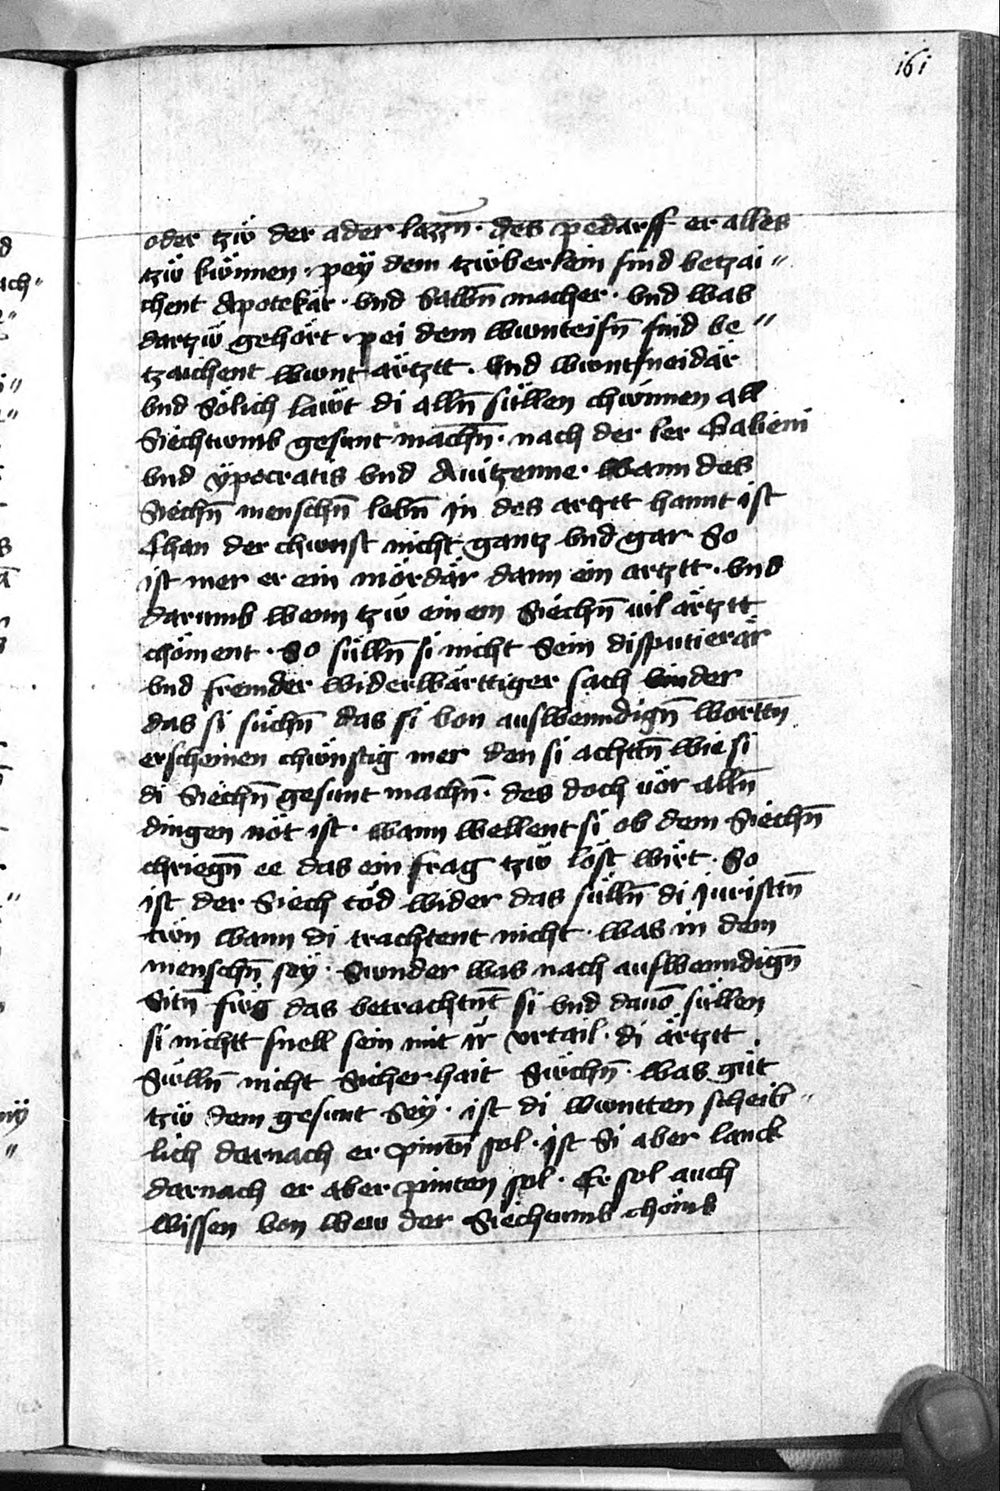 161
oder tzẅ der ader lazzn̄ · des pedarff er alles
tzẅ kẅnnen · peÿ dem tzẅberlein sind betzai〃
chent Apotekär · vnd Salbn̄ macher · vnd was
dartzẅ gehört · pei dem wunteisn̄ sind be〃
tzaichent wunt ärtztt · Vnd wuntsneidär
vnd Sölich läwt di alln̄ süllen chẅnnen all
Siechtumb gesunt machn̄ · nach der ler Galieni
vnd ÿpocratis vnd Auitzenne · Wann des
Siechn̄ menschn̄ lebn̄ in des artztt hannt ist
Chan der chunst nicht gantz vnd gar So
ist mer er ein mördär dann ein artztt · vnd
darumb wenn tzẅ einem Siechn̄ uil ärtztt
chöment · So sülln̄ si nicht Sein disputierär
vnd fremder widerwärttiger sach vinder
das si süchn̄ das si von auswenndign̄ wörttn̄
erscheinen chẅnstig mer den si achttn̄ wie si
di Siechn̄ gesunt machn̄ · des doch vör alln̄
dingen nöt ist · wann wellent si ob dem Siechn̄
chriegn̄ ee das ein frag tzẅ löst wirt · So
ist der Siech töd wider das sülln̄ di Juristn̄
tẅn wann di trachtent nicht · was in dem
menschn̄ seÿ · Sunder was nach auswenndign̄
Sitn̄ füg das betrachtnt̄ si vnd dauō süllen
si nichtt snell sein mit ir vrtail · di ärtztt
Sülln̄ nicht Sicherhait Süchn̄ · was güt
tzẅ dem gesunt Seÿ · ist di wuntten scheib〃
lich darnach er pintn̄ sol · ist Si aber lanck
darnach er aber pinten sol · Er sol auch
wissen von wew der Siechtumb chömb